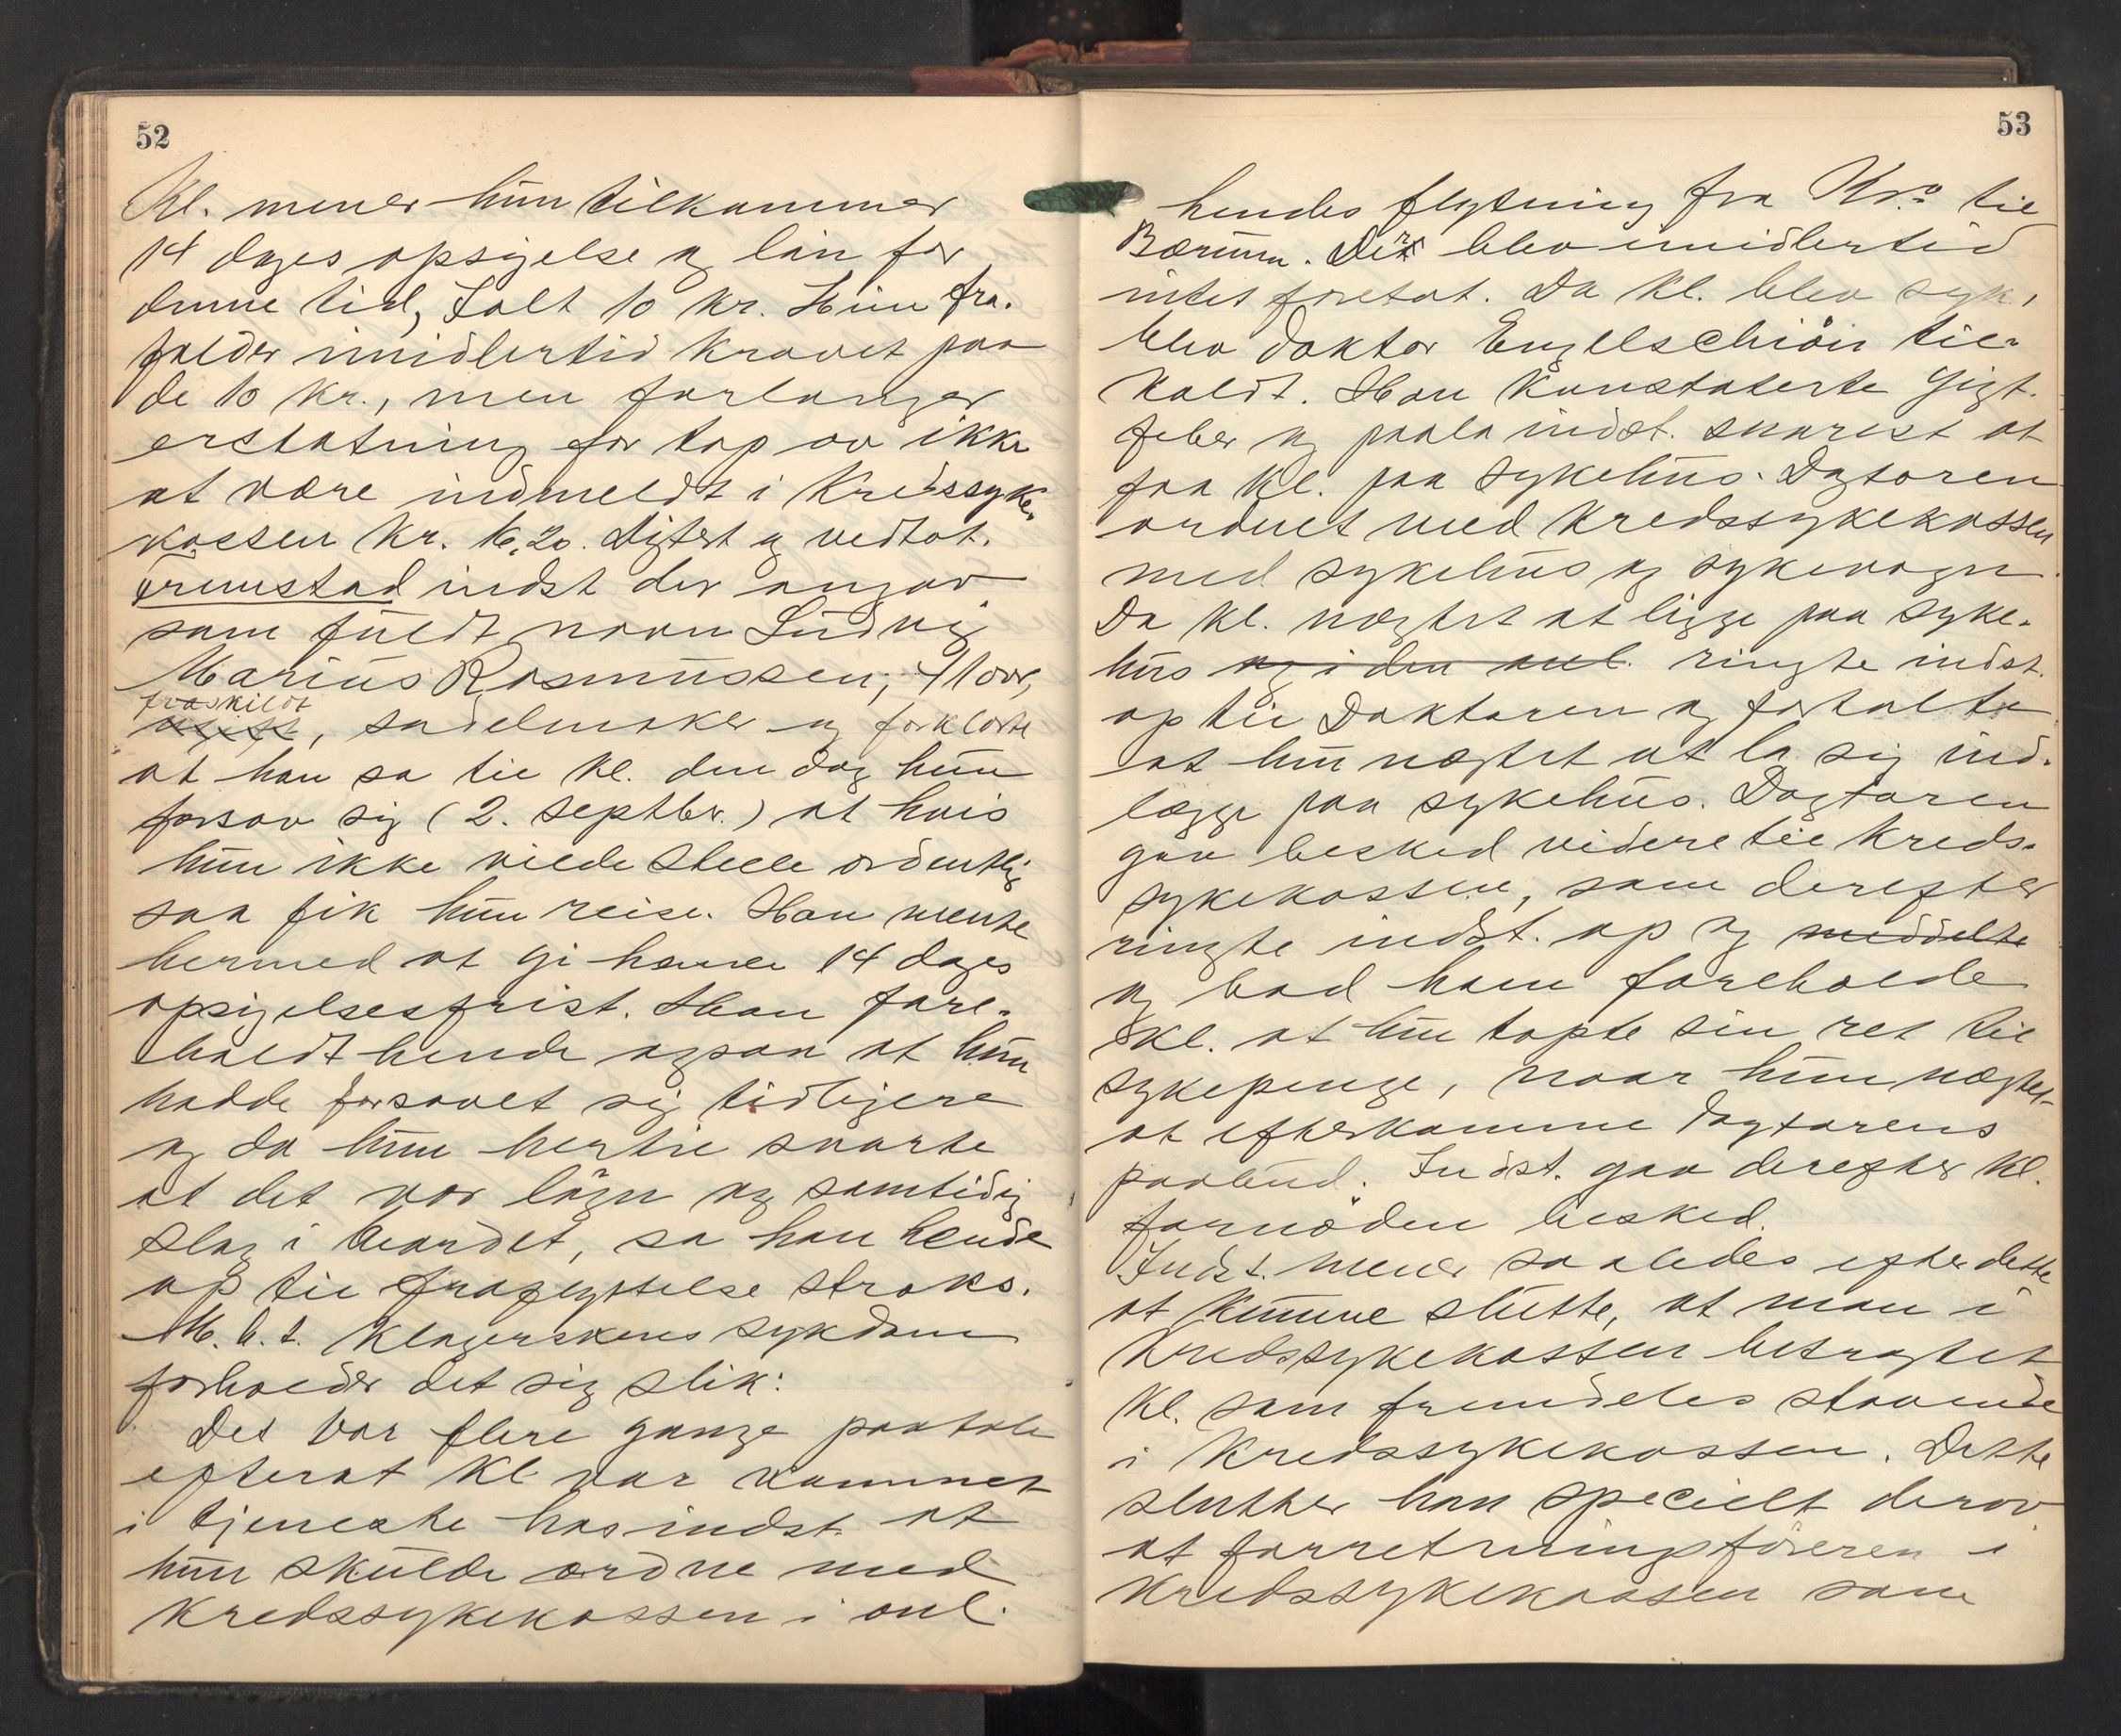 52
Kl. mener hun tilkommer
14 dages opsigelse og løn for
denne tid, Ialt 10 kr. Hun fra-
falder imidlertid kravet paa
de 10 kr., men forlanger
erstatning for tap av ikke
at være indmeldt i Kredssyke-
kassen Kr. 16,20. Digtert og vedtat.
indst der angav
som fuldt navn Ludvig
Marius Rasmussen, 41 aar,
fraskilt
ugift, sadelmaker og forklarte
at han sa til kl. den dag hun
forsov sig (2. septbr.) at hvis
hun ikke vilde stelle ordentlig
saa fik hun reise. Han mente
hermed at gi henne 14 dages
opsigelsesfrist. Han fore-
holdt hende ogsaa at hun
hadde forsovet sig tidligere
og da hun hertil svarte
at det var løgn og samtidig
slag i bordet, sa han hende
op til fraflyttelse straks.
M.h.t. klagerskens sykdom
forholder det sig slik:
Det var flere gange paatale
efterat kl. var kommet
i tjeneste hos indst. at
hun skulde ordne med
Kredssykekassen i anl.
53
hendes flytning fra Kr.a til
Bærum. Der blev imidlertid
intet foretat. Da kl. blev syk,
blev doktor Engelschiøn til-
kaldt. Han konstaterte gigt-
feber og paala indst. snarest at
faa kl. paa sykehus. Dogtoren
ordnet med kredssykekassen
med sykehus og sykevogn.
Da kl. nægtet at ligge paa syke-
hus og i den anl. ringte indst.
op til Doktoren og fortalte
at hun nægtet at la sig ind-
lægge paa sykehus. Dogtoren
gav besked videre til Kreds-
sykekassen, som derefter
ringte indst. op og meddelte
og bad ham foreholde
kl. at hun tapte sin ret til
sykepenge, naar hun nægtet
at efterkomme Dogtorens
paabud. Indst. gav derefter kl.
fornøden besked.
Indst. mener saaledes efter dette
at kunne slutte, at man i
Kredssykekassen betragtet
kl. som fremdeles staaende
i Kredssykekassen. Dette
slutter han specielt derav
at forretningsføreren i
Kredssykekassen som